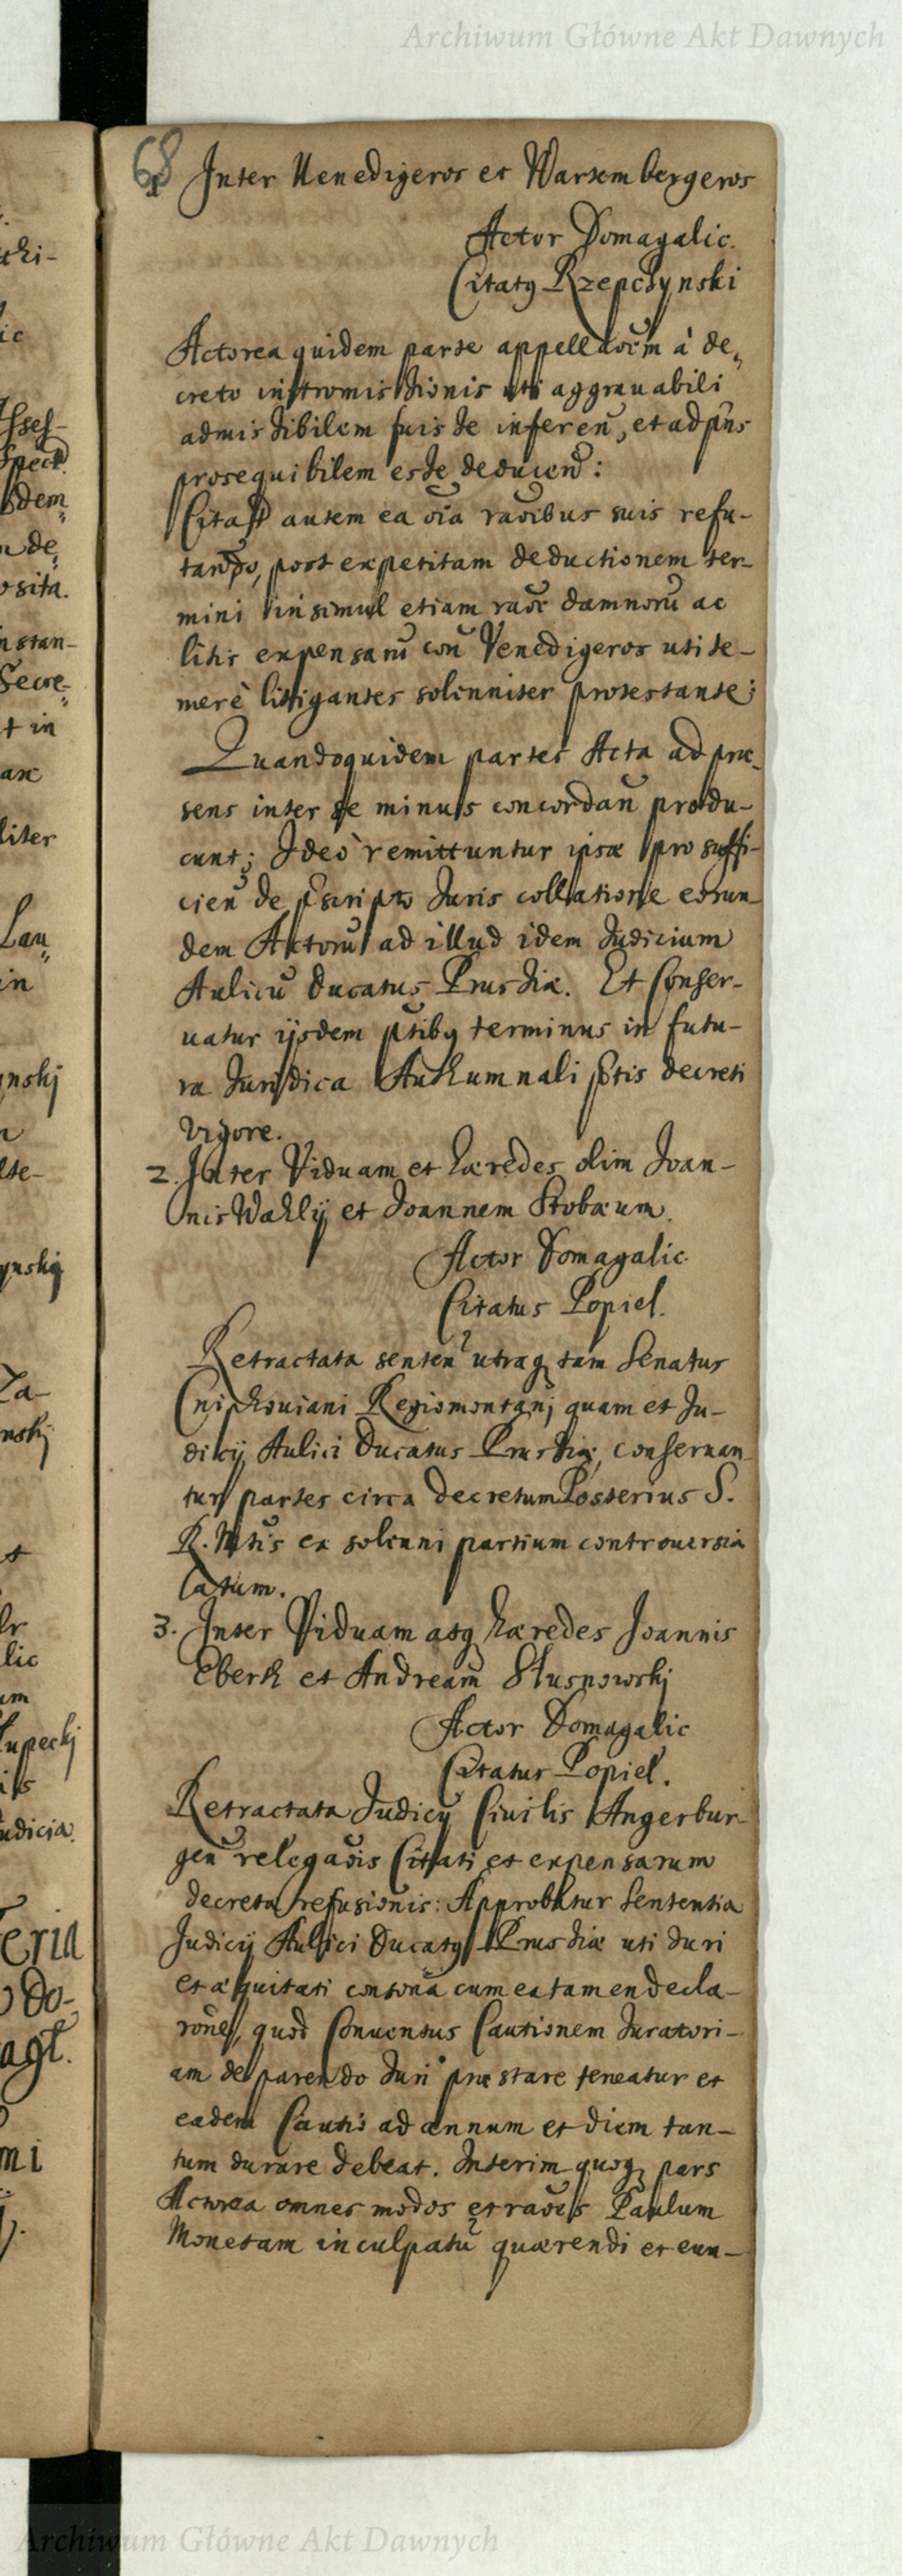 Archiwum Główne Akt Dawnych
68
1 Inter Venedigeros et Wartembergeros
Actor Domagalic.
Citatg Rzepczynski
Actorea quidem parte appellaoem à de„
creto intromissionis uti aggravabili
admissibilem fuisse inferen, et ad pns
prosequibilem esse deducen:
Citato autem ea oia raoibus suis refu-
tando, post expetitam deductionem ter-
mini insimul etiam raoe damnorū ac
litis expensarū con Venedigeros uti te-
merè litigantes solenniter protestante;
Quandoquidem partes Acta ad præ-
sens inter se minus concordan produ-
cunt; Ideò remittuntur ipsæ pro suffi-
cien de pscripto Juris collatione eorun-
dem Actorū ad illud idem Judicium
Aulicū Ducatus Prussiæ. Et Conser-
vatur ijsdem ptibg terminus in futu-
ra Juridica Authumnali pntis decreti
vigore.
2. Inter Viduam et hæredes olim Joan-
nis Wahlij et Joannem Stobæum.
Actor Domagalic
Citatus Popiel.
Retractata senten utraq tam Senatus
Cniphoviani Regiomontanj quam et Ju-
dicij Aulici Ducatus Prussiæ, conservan-
tur partes circa decretum Posterius S.
R. Mtis ex solenni partium controversia
latum.
3. Inter Viduam atq hæredes Joannis
Eberh et Andream Stusnowskj
Actor Domagalic
Citatus Popiel.
Retractata Judicij Civilis Angerbur-
gen relegaois Citati et expensarum
decreta refusionis: Approbatur Sententia
Judicij Aulici Ducatg Prussiæ uti Juri
et æquitati consona cum ea tamen decla-
rone, quod Conventus Cautionem Juratori-
am de parendo Juri præstare teneatur et
eadem Cautio ad annum et diem tan-
tum durare debeat. Interim quoq pars
Actorea omnes modos et raoes Paulum
Monetam inculpatū quærendi et eun-
Archiwum Główne Akt Dawnych